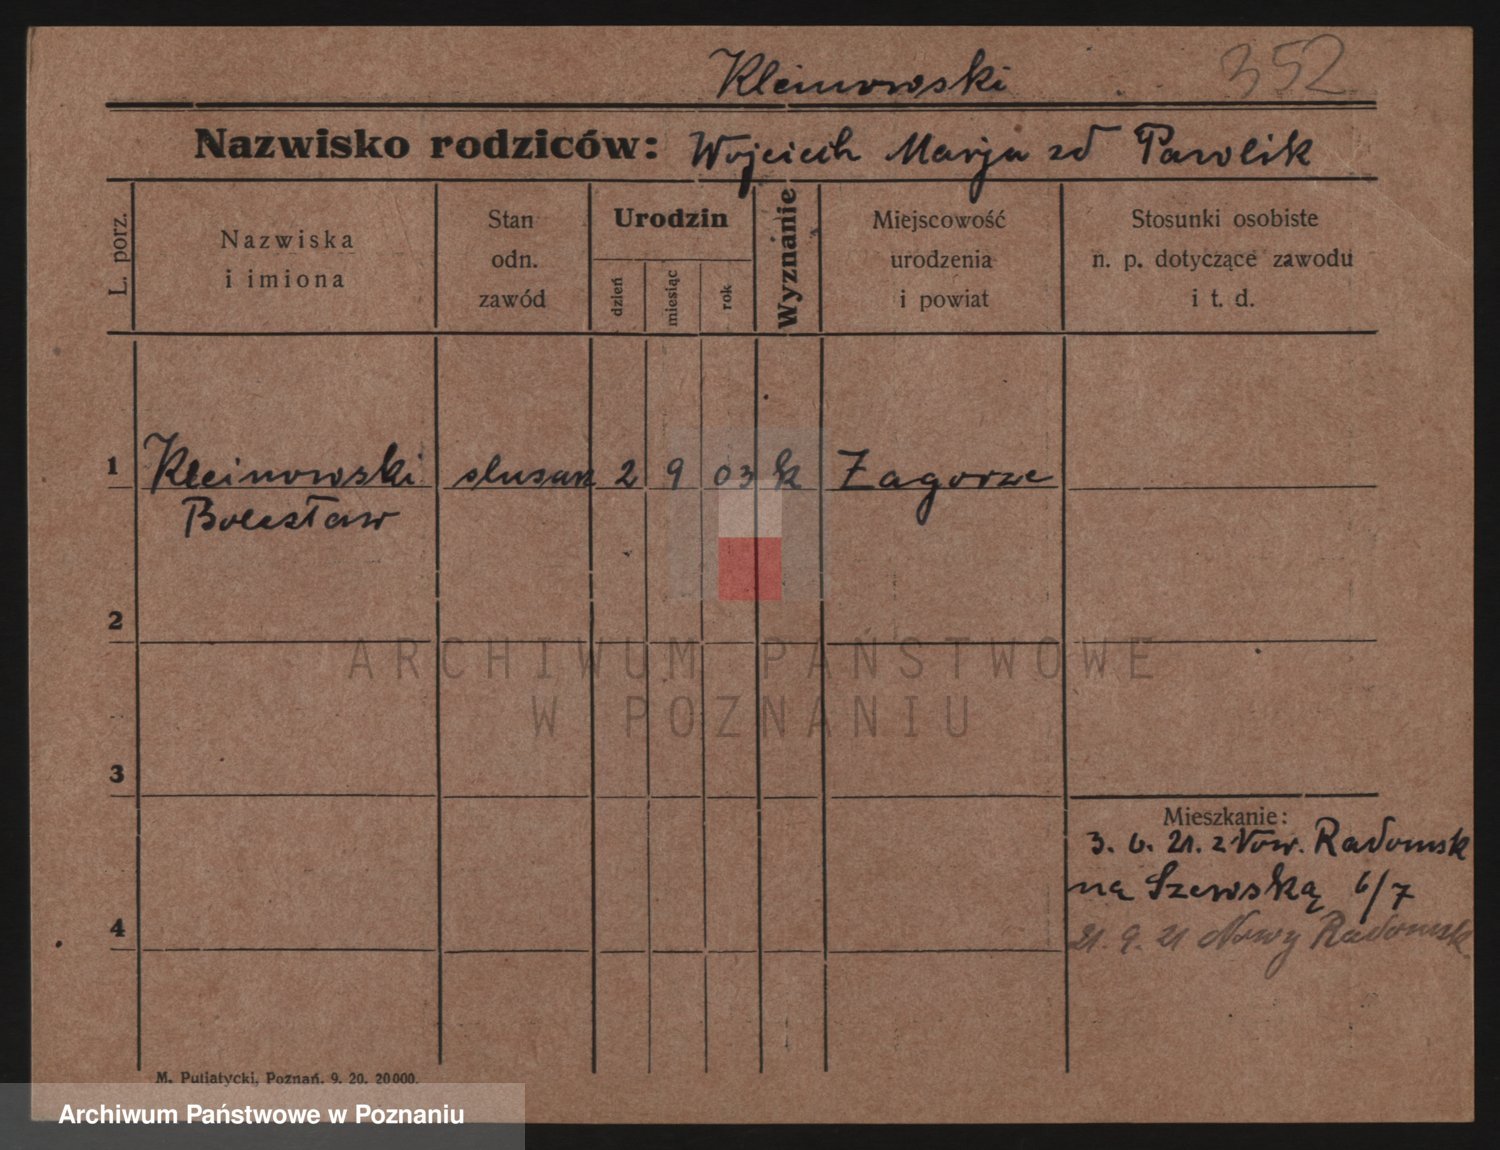 Kleinowski 352
Nazwisko rodziców: Wojciech Marja zd Pawlik
L. porz.
Nazwiska
i imiona
Stan
odn.
zawód
Urodzin
dzień
miesiąc
rok
Wyznanie
Miejscowość
urodzenia
i powiat
Stosunki osobiste
n. p. dotyczące zawodu
i t. d.
1 Kleinowski slusarz 2 9 03 k Zagorze
Bolesław
2
ARCHIWUM PAŃSTWOWE
W POZNANIU
3
Mieszkanie:
3. 6. 21. z Now. Radomsk
na Szewską 6/7
4
21. 9. 21 Nowy Radomsk
M. Putiatycki, Poznań. 9. 20. 20000.
Archiwum Państwowe w Poznaniu